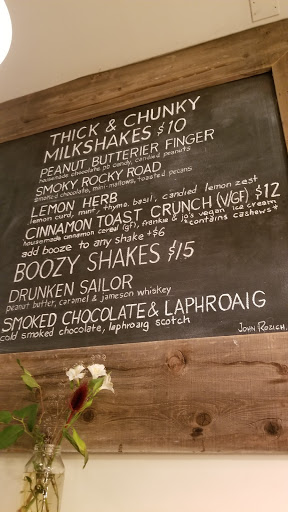 THICK & CHUNKY
MILKSHAKES $10
PEANUT BUTTERIER FINGER
homemade chocolate pb candy, candied peanuts
SMOKY ROCKY ROAD
smoked chocolate, mini-mallows, toasted pecans
LEMON HERB
lemon curd, mint, thyme, basil, candied lemon zest
CINNAMON TOAST CRUNCH (V/GF) $12
housemade cinnamon cereal (gf), frankie & jo's vegan ice cream
*contains cashews*
add booze to any shake +$6
BOOZY SHAKES $15
DRUNKEN SAILOR
peanut butter, caramel & jameson whiskey
SMOKED CHOCOLATE & LAPHROAIG
cold smoked chocolate, laphroaig scotch
JOHN ROZICH.